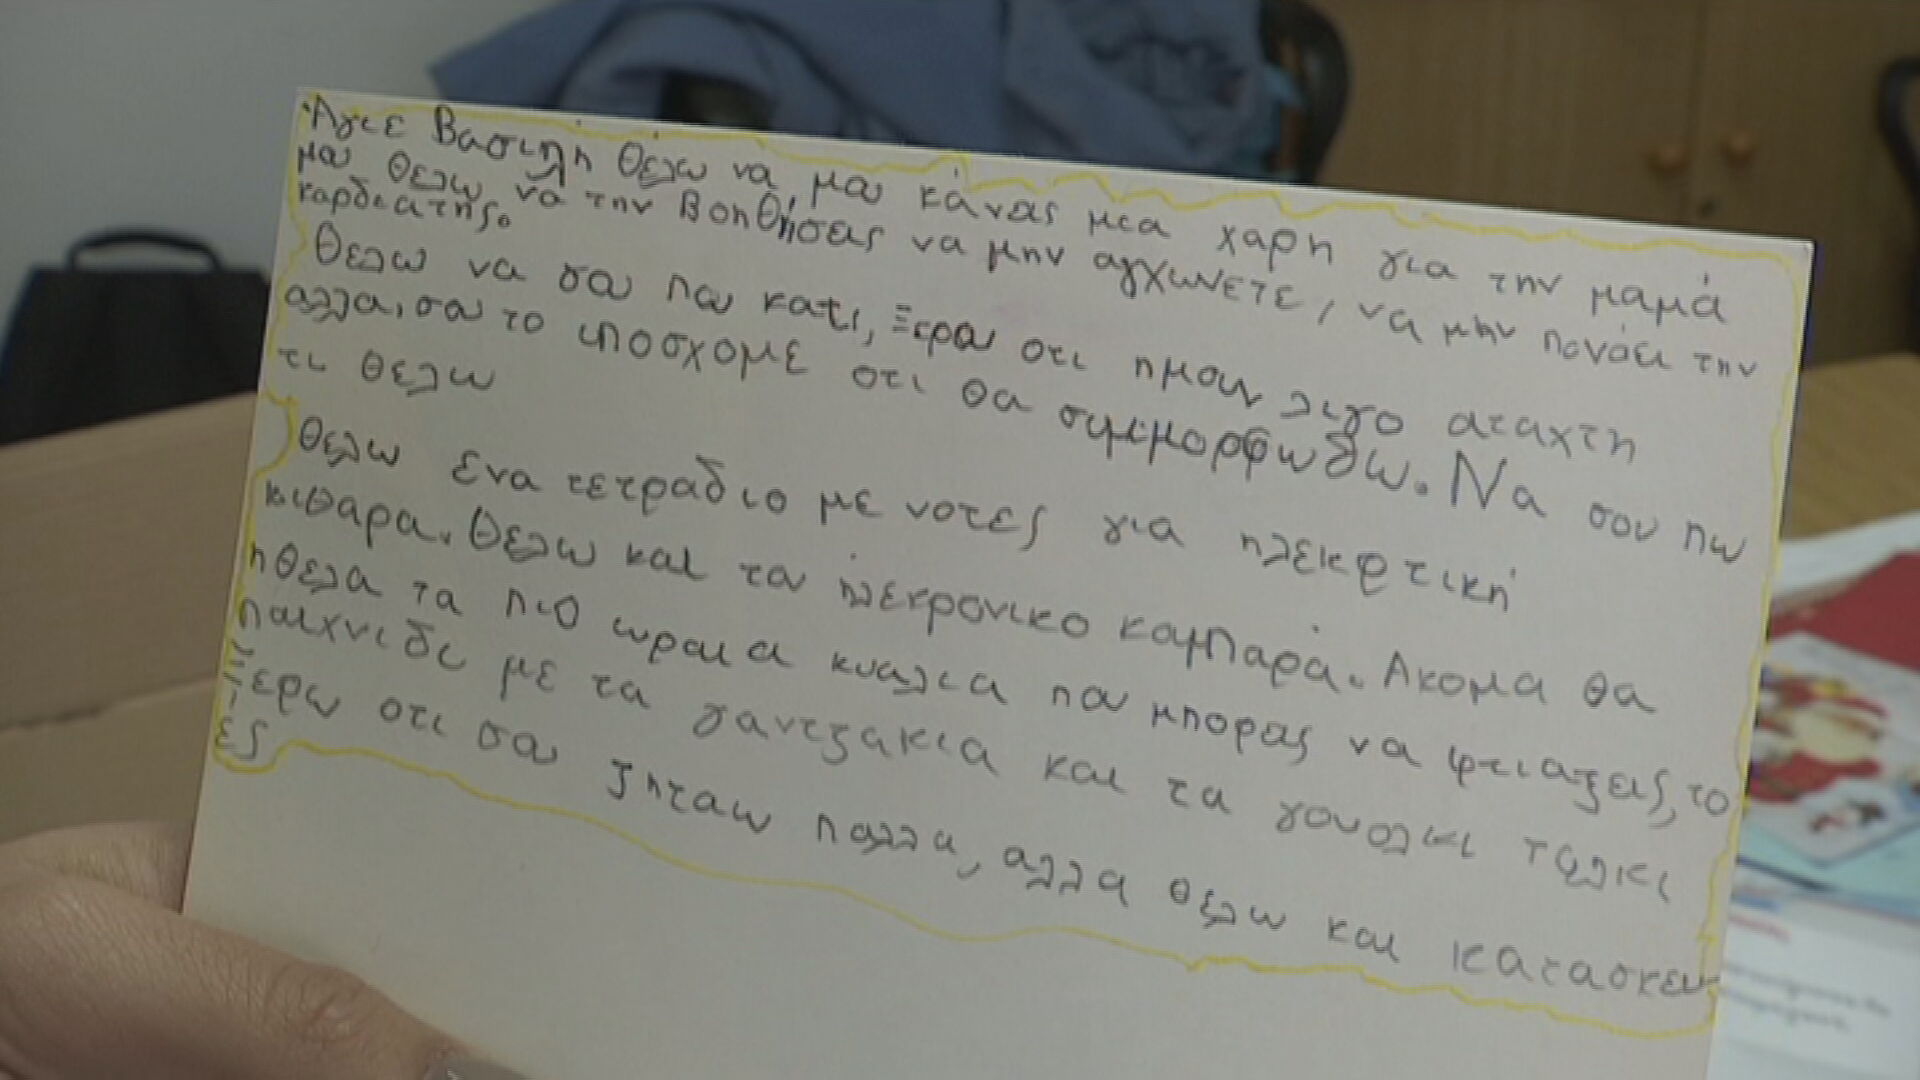 Αγιε Βασιλη θέλω να μου κάνεις μια χαρη για την μαμά
μου θελω να την Βοηθησεις να μην αγχωνετε, να μην πονάει την
καρδιατης.
Θελω να σου πω κατι, Ξερω οτι ημουν λιγο αταχτη
αλλα, σου το υποσχομε οτι θα συμμορφωθω. Να σου πω
τι θελω
Θελω ενα τετραδιο με νοτες για ηλεκφτική
κιθαρα. Θελω και το ηλεκρονικο καμπαρά. Ακομα θα
ηθελα τα πιο ωραια κυαλια που μπορεις να φτιαξεις, το
παιχνιδι με τα γαντζακια και τα γουολκι τολκι
Ξερω οτι σου ζηταω πολλα, αλλα θελω και κατασκευ-
ές